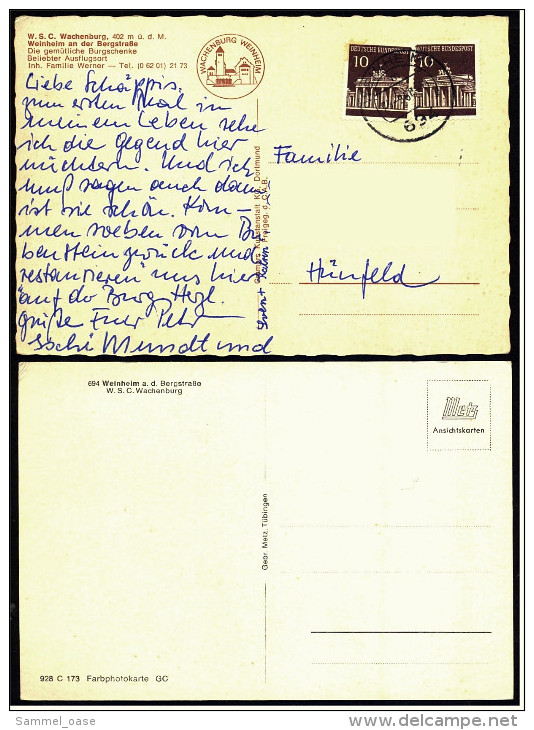 W. S. C. Wachenburg, 402 m ü. d. M.
Weinheim an der Bergstraße
Die gemütliche Burgschenke
Beliebter Ausflugsort
Inh. Familie Werner — Tel. (0 62 01) 21 73
WACHENBURG WEINHEIM
DEUTSCHE BUNDESPOST
10
DEUTSCHE BUNDESPOST
10
Liebe Schäppis,
zum ersten Mal in
meinem Leben sehe
ich die Gegend hier
nüchtern. Und ich
muß sagen auch dann
ist sie schön. Kom-
men soeben vom
zurück und
"restaurieren" uns hier
auf der Burg. Herzl.
Grüße Euer Peter
Mundt und
Familie
Hünfeld
Kunstanstalt KG, Dortmund
Freigeg. d.
694 Weinheim a. d. Bergstraße
W. S. C. Wachenburg
Metz
Ansichtskarten
Gebr. Metz, Tübingen
928 C 173 Farbphotokarte GC
Sammel_oase
www.delcampe.net